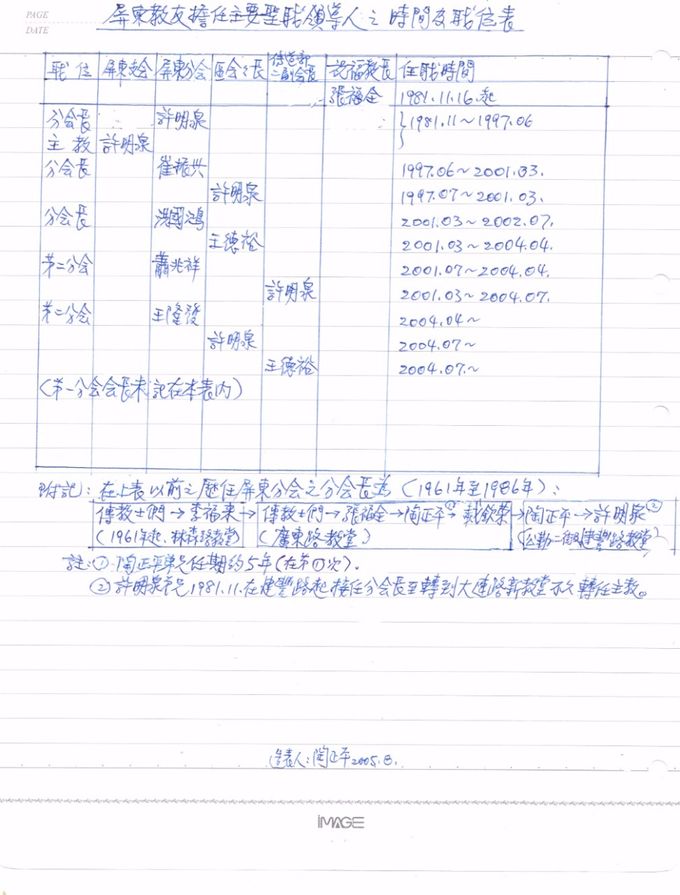 PAGE
DATE
屏東教友擔任主要聖職領導人之時間及職位表
職位 屏東支会 屏東分会 區会々長 傳道部二副会長 祝福教長 任職時間
張福全 1981.11.16.起
分会長 許明泉 }1981.11～1997.06
主教 許明泉
分会長 崔振兴 1997.06～2001.03.
許明泉 1997.07～2001.03.
分会長 國鴻 2001.03～2002.07.
王德裕 2001.03～2004.04.
第二分会 蕭兆祥 2001.07～2004.04.
許明泉 2001.03～2004.07.
第二分会 王隆發 2004.04～
許明泉 2004.07～
王德裕 2004.07.～
(第一分会会長未記在本表內)
附記：在上表以前之歷任屏東分会之分会長為(1961年至1986年)：
傳教士們→李福来→傳教士們→張福全→陶正平①→戴欽榮→陶正平→許明泉②
(1961年起.林森路教堂) (廣東路教堂) (公勤二街及建豐路教堂)
註：①陶正平弟兄任期約5年(在第①次).
②許明泉弟兄1981.11.在建豐路起接任分会長至轉到大連路新教堂不久轉任主教。
造表人：陶正平2005.8.
iMAGE